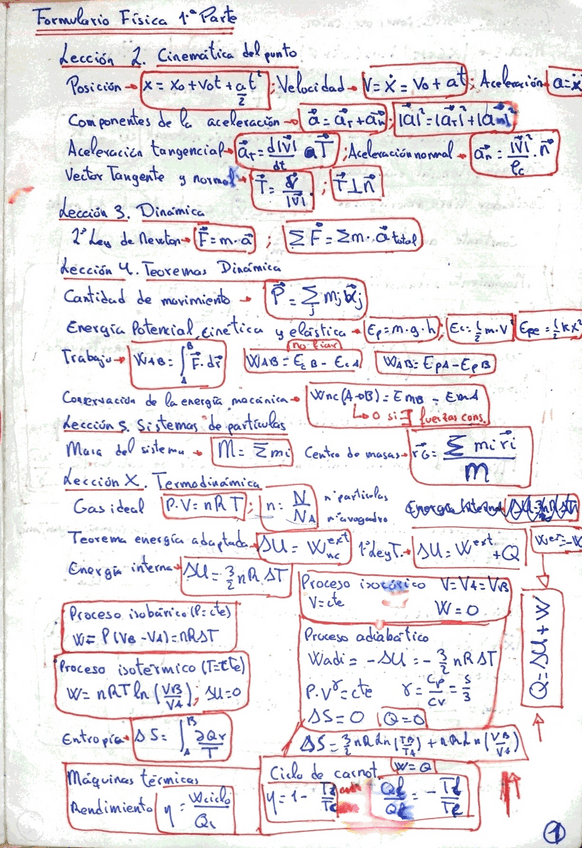 Formulario Física 1ª Parte
Lección 2. Cinemática del punto
Posición → x = x₀ + v₀t + a/2 t² ; Velocidad → V = ẋ = V₀ + at ; Aceleración a = ẍ
Componentes de la aceleración → a⃗ = a⃗τ + a⃗n ; |a|² = |aτ|² + |an|²
Aceleración tangencial → a⃗τ = d|v⃗|/dt T⃗ ; Aceleración normal → a⃗n = |v⃗|²/ρc · n⃗
Vector Tangente y normal → T⃗ = v⃗/|v⃗| ; T⃗ ⊥ n⃗
Lección 3. Dinámica
2ª Ley de Newton → F⃗ = m·a⃗ ; ΣF⃗ = Σm·a⃗ total
Lección 4. Teoremas Dinámica
Cantidad de movimiento → P⃗ = Σj mj v⃗j
Energía Potencial, cinética y elástica → Ep = m·g·h ; Ec = ½ m·V² Epe = ½ k x²
no liar
Trabajo → WAB = ∫A^B F⃗·dr⃗ WAB = EcB - EcA WAB = EpA - EpB
Conservación de la energía mecánica → Wnc(A→B) = EmB - EmA
↳ 0 si ∃ fuerzas cons.
Lección 5. Sistemas de partículas
Masa del sistema → M = Σmi Centro de masas → r⃗G = Σ mi r⃗i / M
Lección X. Termodinámica
Gas ideal P·V = nRT ; n = N/NA nº partículas nº avogadro Energía Interna
Teorema energía adaptada → ΔU = Wnc^ext 1ª Ley T. → ΔU = W^ext + Q W^ext = -W
Energía interna → ΔU = 3/2 nR ΔT
Proceso isocórico V = VA = VB
V = cte W = 0
Q = ΔU + W
Proceso isobárico (P = cte)
W = P(VB - VA) = nRΔT
Proceso adiabático
Wadi = -ΔU = -3/2 nRΔT
P·V^γ = cte γ = CP/CV = 5/3
ΔS = 0 (Q = 0)
Proceso isotérmico (T = cte)
W = nRT ln(VB/VA) ; ΔU = 0
Entropía → ΔS = ∫A^B ∂Qr/T
ΔS = 3/2 nR ln(TB/TA) + nR ln(VB/VA)
Máquinas térmicas
Rendimiento η = Wciclo/Qc
Ciclo de carnot. (W = Q)
η = 1 - Tf/Tc Qf/Qc = -Tf/Tc
1